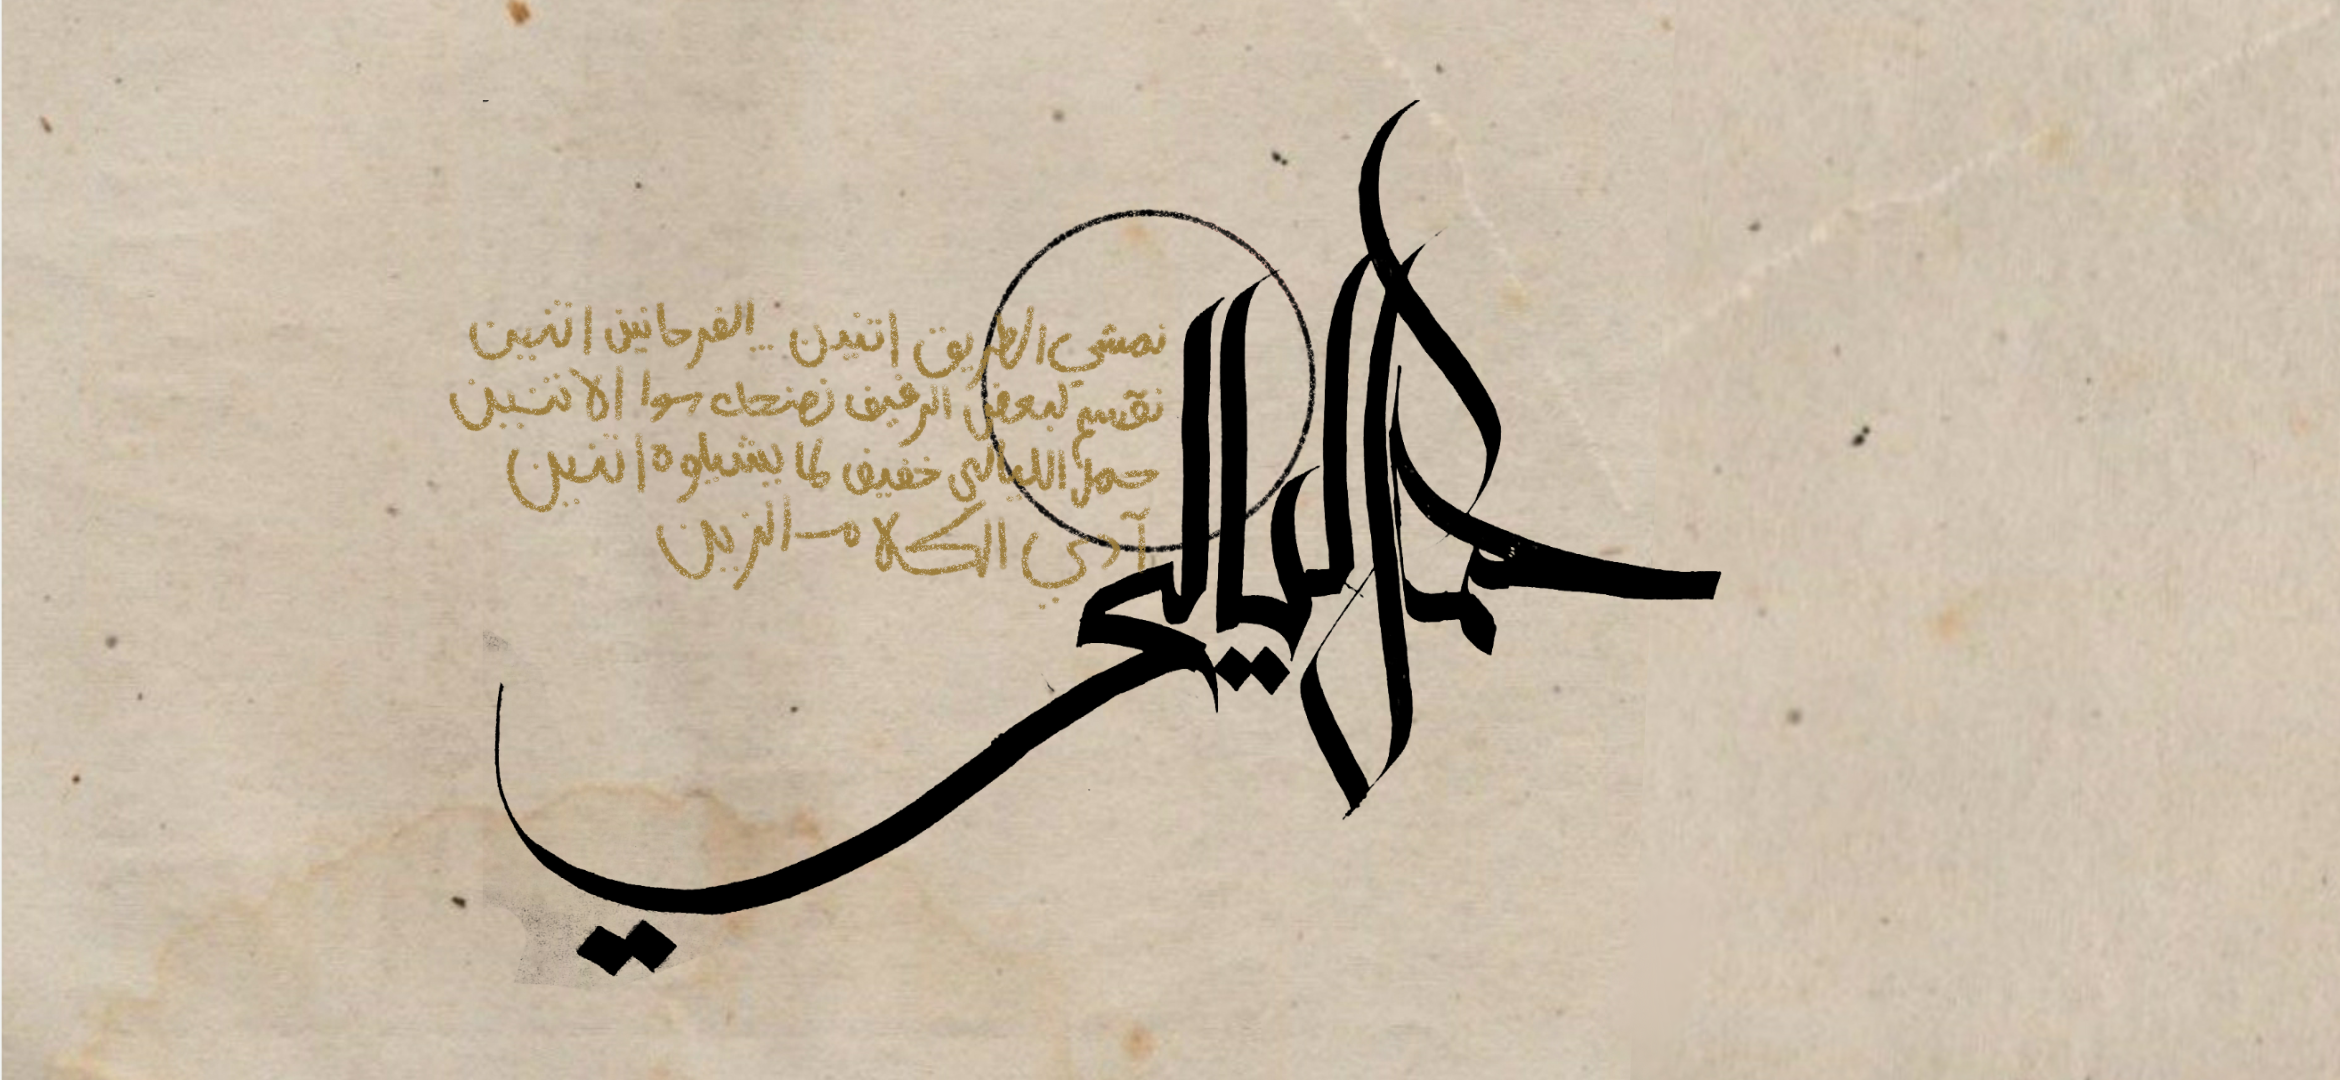 حمل الليالي
نمشي الطريق اتنين ... الفرحانين اتنين
نقسم لبعض الرغيف نضحك سوا الاتنين
حمل الليالي خفيف لما يشيلوه اتنين
آدي الكلام الزين